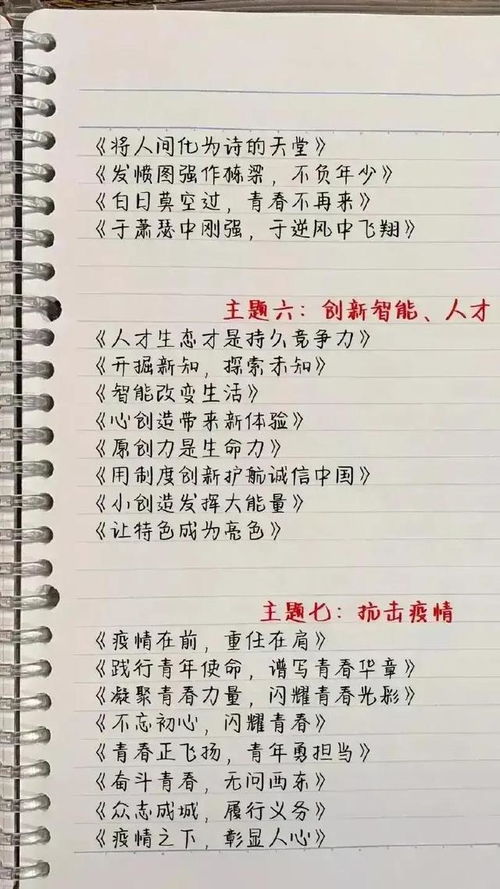 《将人间化为诗的天堂》
《发愤图强作栋梁，不负年少》
《白日莫空过，青春不再来》
《于萧瑟中刚强，于逆风中飞翔》
主题六：创新智能、人才
《人才生态才是持久竞争力》
《开掘新知，探索未知》
《智能改变生活》
《心创造带来新体验》
《原创力是生命力》
《用制度创新护航诚信中国》
《小创造发挥大能量》
《让特色成为亮色》
主题七：抗击疫情
《疫情在前，重任在肩》
《践行青年使命，谱写青春华章》
《凝聚青春力量，闪耀青春光彩》
《不忘初心，闪耀青春》
《青春正飞扬，青年勇担当》
《奋斗青春，无问西东》
《众志成城，履行义务》
《疫情之下，彰显人心》